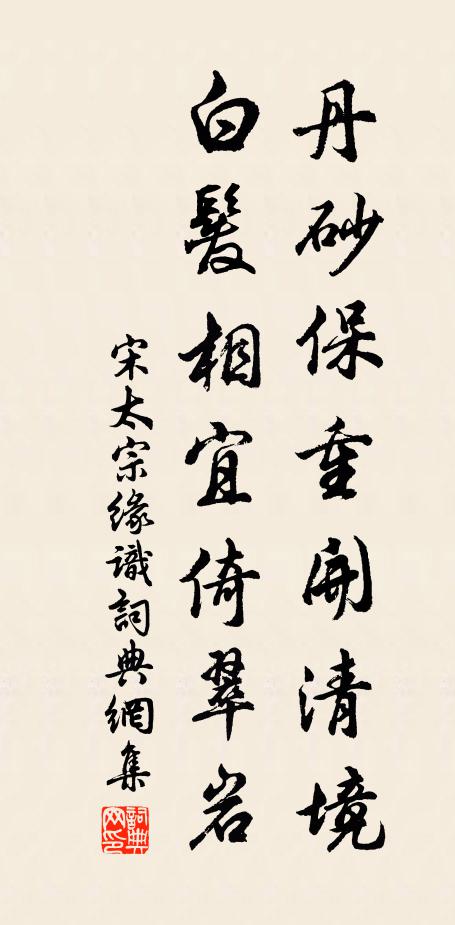 丹砂保重開清境
白髮相宜倚翠岩
宋太宗緣識詞典網集
詞典网印